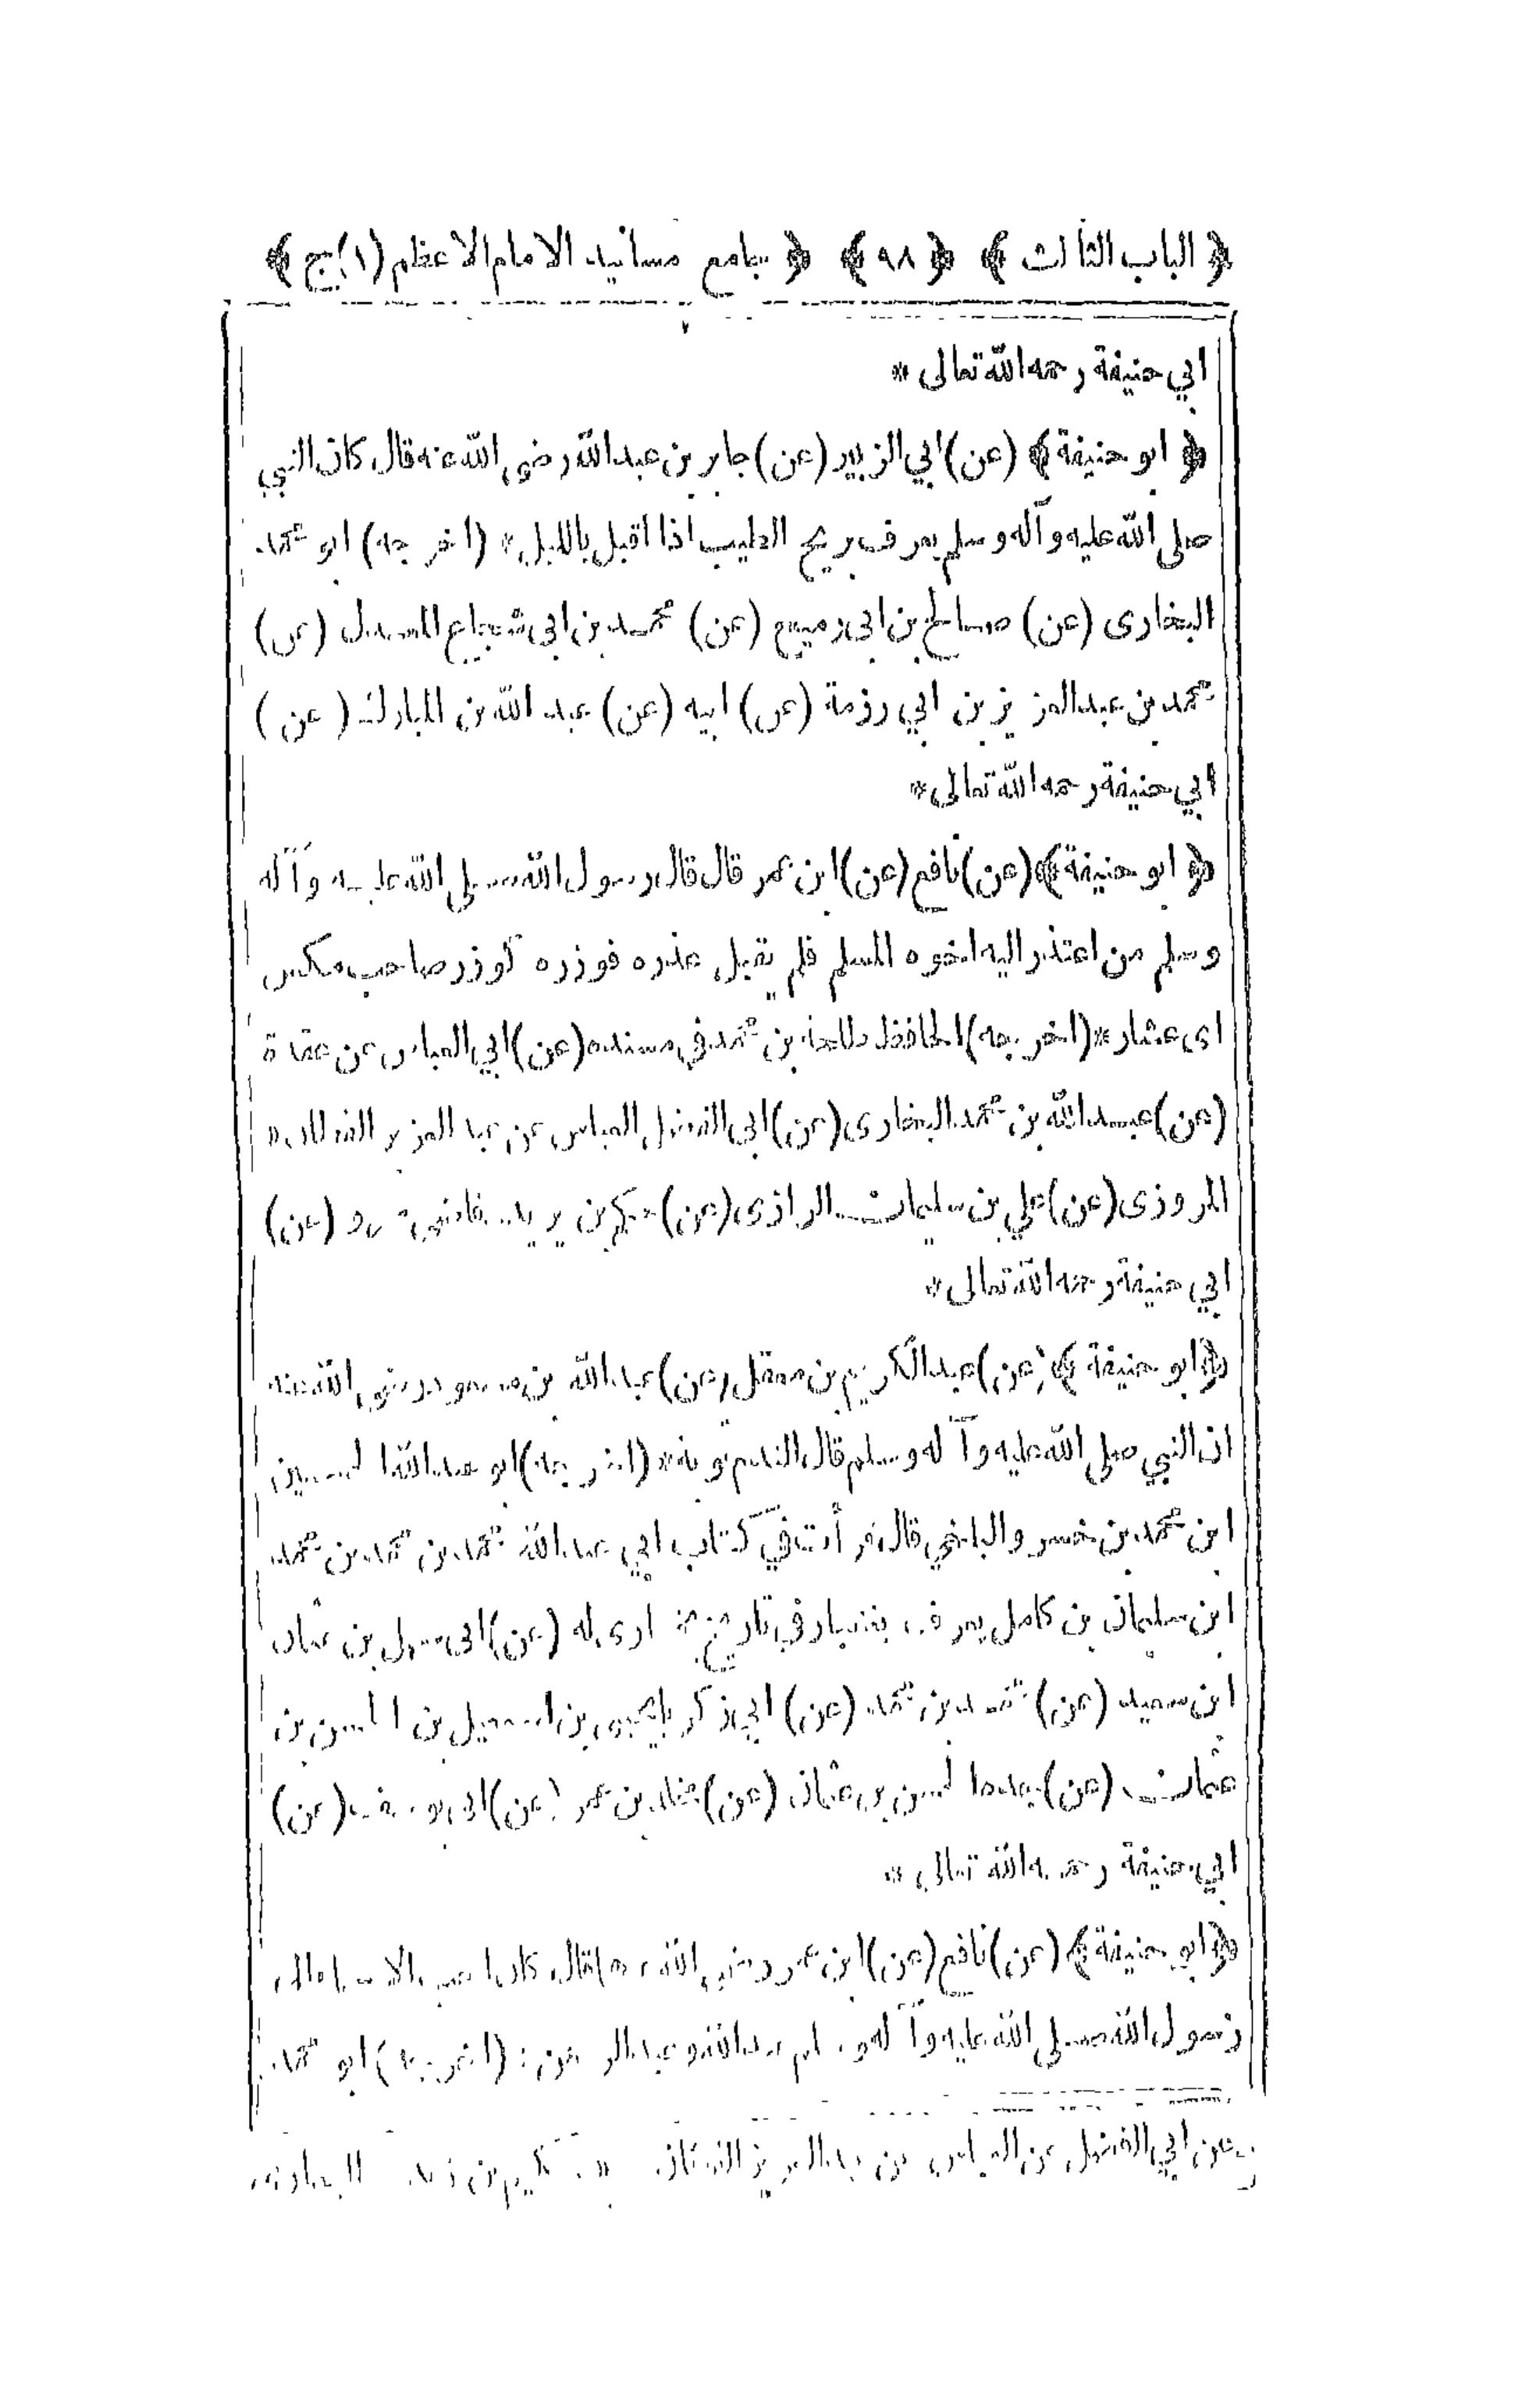 ﴿ الباب الثالث ﴾ ﴿ ٩٨ ﴾ ﴿ جامع مسانيد الامام الاعظم (١) ج ﴾
ابي حنيفة رحمه الله تعالى *
﴿ ابو حنيفة ﴾ (عن) ابي الزبير (عن) جابر بن عبد الله رضى الله عنه قال كان النبي
صلى الله عليه وآله وسلم يعرف بريح الطيب اذا اقبل بالليل * (اخرجه) ابو محمد
البخارى (عن) صالح بن ابى رميح (عن) محمد بن ابى شجاع المعدل (عن)
محمد بن عبد العزيز بن ابي رزمة (عن) ابيه (عن) عبد الله بن المبارك (عن)
ابي حنيفة رحمه الله تعالى *
﴿ ابو حنيفة ﴾ (عن) نافع (عن) ابن عمر قال قال رسول الله صلى الله عليه وآله
وسلم من اعتذر اليه اخوه المسلم فلم يقبل عذره فوزره كوزر صاحب مكس
اى عشار * (اخرجه) الحافظ طلحة بن محمد فى مسنده (عن) ابي العباس بن عقدة
(عن) عبد الله بن محمد البخارى (عن) ابى الفضل العباس بن عبد العزيز القطان *
المروزى (عن) علي بن سليمان الرازى (عن) حكيم بن يزيد قاضى مرو (عن)
ابي حنيفة رحمه الله تعالى *
﴿ ابو حنيفة ﴾ (عن) عبد الكريم بن معقل (عن) عبد الله بن مسعود رضى الله عنه
ان النبي صلى الله عليه وآله وسلم قال الندم توبة * (اخرجه) ابو عبد الله الحسين
ابن محمد بن خسرو البلخي قال قرأت في كتاب ابي عبد الله محمد بن محمد بن محمد
ابن سليمان بن كامل يعرف بغنجار فى تاريخ بخارى له (عن) ابى سهل بن عثمان
ابن سعيد (عن) محمد بن محمد (عن) ابي زكريا يحيى بن اسمعيل بن الحسن بن
عثمان (عن) جده الحسن بن عثمان (عن) مخلد بن عمر (عن) ابى يوسف (عن)
ابي حنيفة رحمه الله تعالى *
﴿ ابو حنيفة ﴾ (عن) نافع (عن) ابن عمر رضى الله عنهما قال كان احب الاسماء الى
رسول الله صلى الله عليه وآله وسلم عبد الله وعبد الرحمن * (اخرجه) ابو محمد
عن ابي الفضل بن العباس بن عبد العزيز القطان * حكيم بن زيد